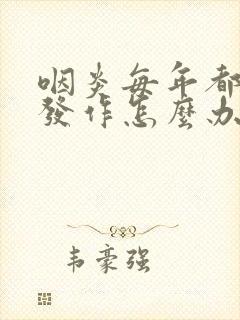 咽炎每年都
發作怎麼办
韦豪强